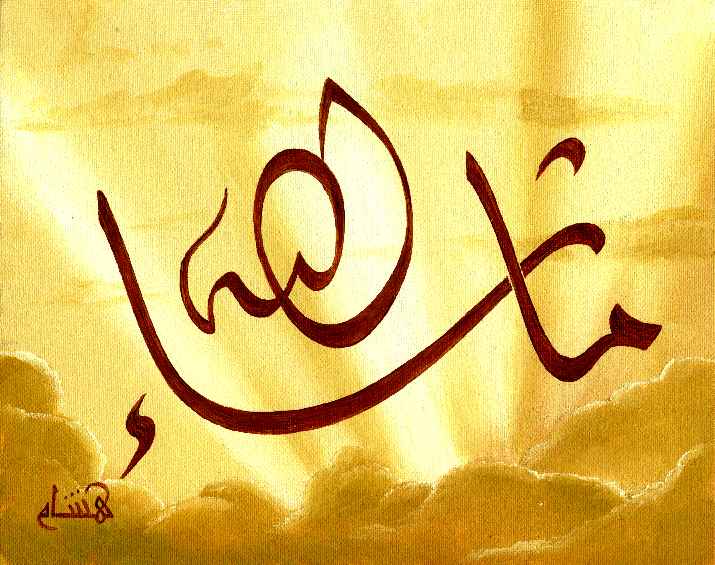 ما شاء الله
هشام